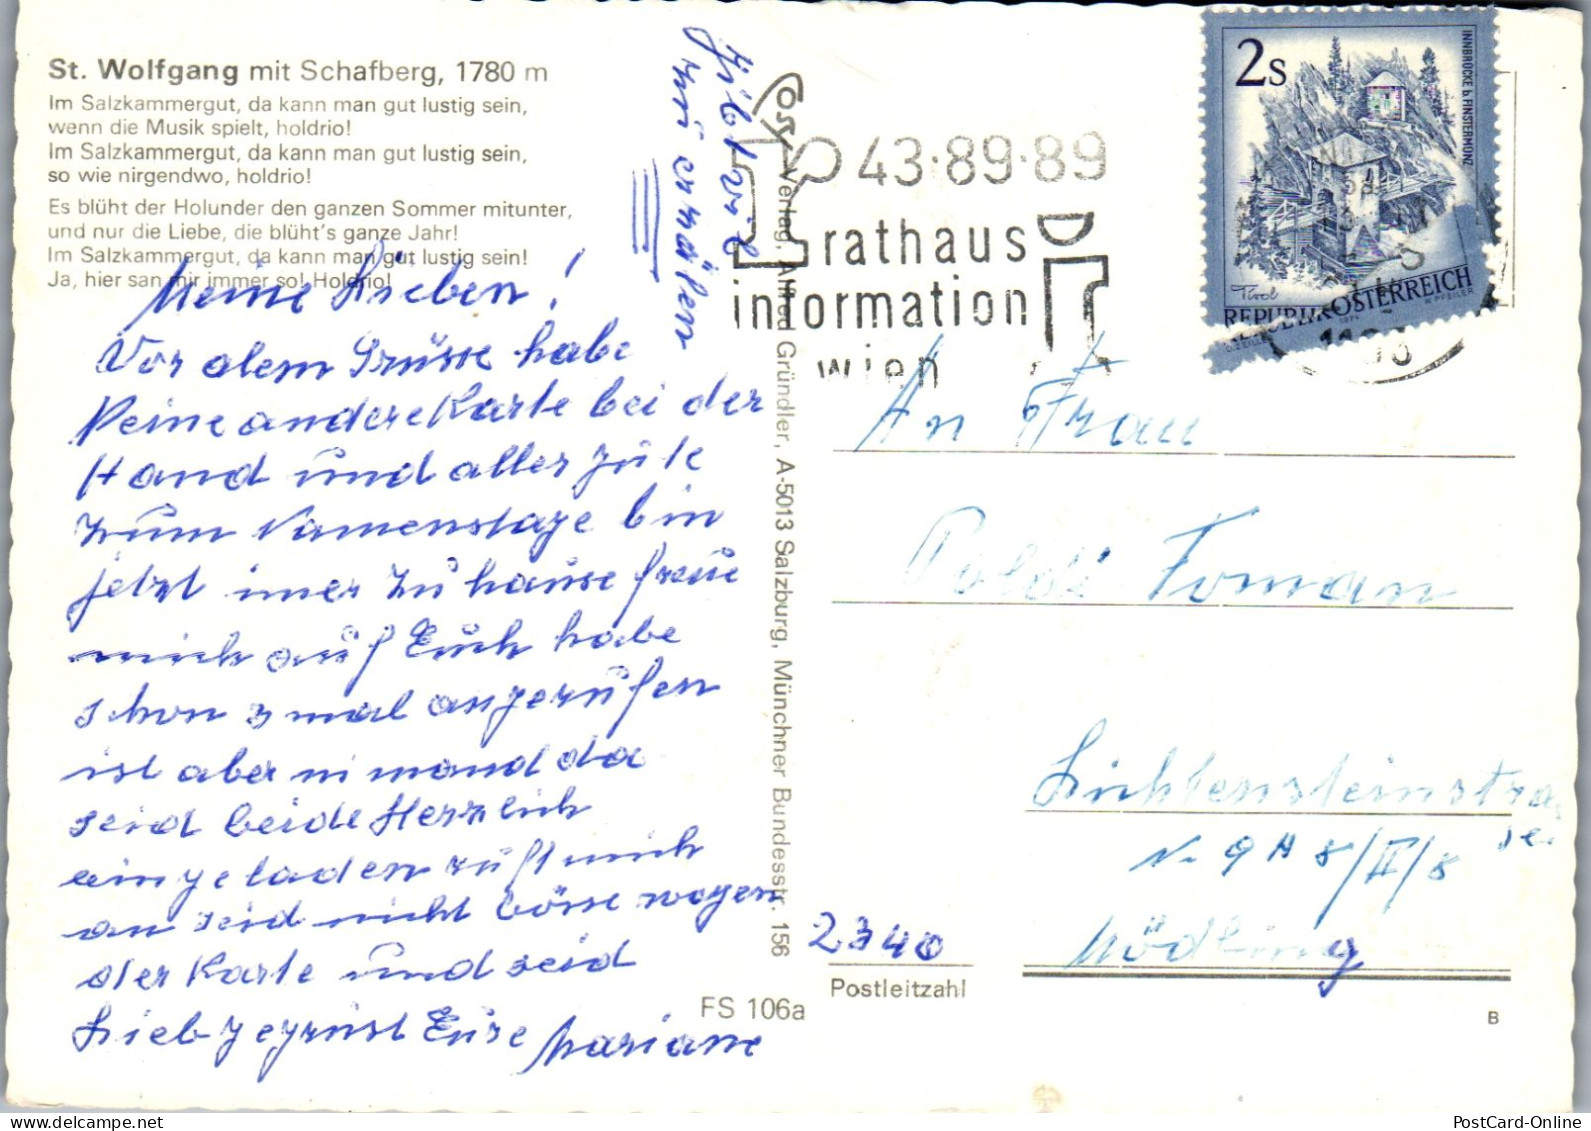 St. Wolfgang mit Schafberg, 1780 m
Im Salzkammergut, da kann man gut lustig sein,
wenn die Musik spielt, holdrio!
Im Salzkammergut, da kann man gut lustig sein,
so wie nirgendwo, holdrio!
Es blüht der Holunder den ganzen Sommer mitunter,
und nur die Liebe, die blüht's ganze Jahr!
Im Salzkammergut, da kann man gut lustig sein!
Ja, hier san mir immer so! Holdrio!
Meine Lieben!
Vor alem Grüsse habe
Keine andere Karte bei der
Hand und alles Gute
zum Namenstage bin
jetzt imer zu hause freue
mich auf Euch habe
schon 3 mal angerufen
ist aber nimand da
seid beide Herzlich
eingeladen ruft mich
an seid nicht bösse wegen
der Karte und seid
Liebgegrüst Eure Mariane
Gibt viel
zu erzälen
Verlag, Alfred Gründler, A-5013 Salzburg, Münchner Bundesstr. 156
FS 106a
Post
43·89·89
rathaus
information
wien
2 S
INNBRÜCKE b. FINSTERMÜNZ
Tirol
REPUBLIK ÖSTERREICH
An Frau
Poldi Toman
Lichtensteinstra
se.
N. 9 A 8/II/8
2340
Mödling
Postleitzahl
B
PostCard-Online